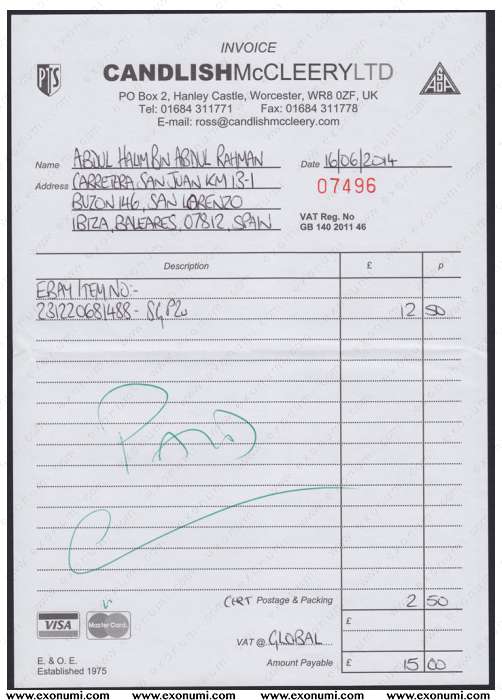 INVOICE
PTS
CANDLISHMcCLEERYLTD
ASDA
PO Box 2, Hanley Castle, Worcester, WR8 0ZF, UK
Tel: 01684 311771 Fax: 01684 311778
E-mail: ross@candlishmccleery.com
Name ABDUL HALIM BIN ABDUL RAHMAN
Date 16/06/2014
Address CARRETERA SAN JUAN KM 13-1
07496
BUZON 146, SAN LORENZO
IBIZA, BALEARES, 07812, SPAIN
VAT Reg. No
GB 140 2011 46
Description £ p
EBAY ITEM NO:-
231220681488 - SG P20 12 50
PAID
CERT Postage & Packing 2 50
VISA MasterCard
£
VAT @ GLOBAL
E. & O. E.
Established 1975
Amount Payable £ 15 00
www.exonumi.com www.exonumi.com www.exonumi.com www.exonumi.com